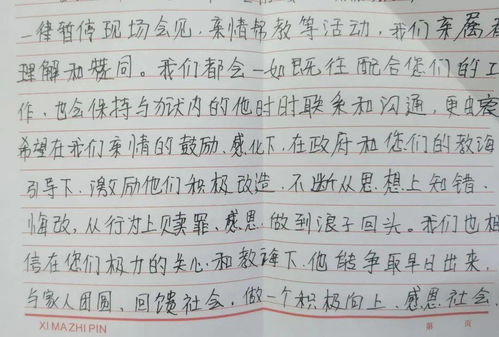 一律暂停现场会见，亲情帮教等活动，我们亲属
理解和赞同。我们都会一如既往配合您们的工
作，也会保持与狱内的他时时联系和沟通，更
希望在我们亲情的鼓励、感化下，在政府和您们的教诲
引导下，激励他们积极改造，不断从思想上知错、
悔改，从行为上赎罪、感恩，做到浪子回头。我们也相
信在您们极力的关心和教诲下，他能争取早日出来，
与家人团圆，回馈社会，做一个积极向上、感恩社会、
XI MA ZHI PIN 第 页